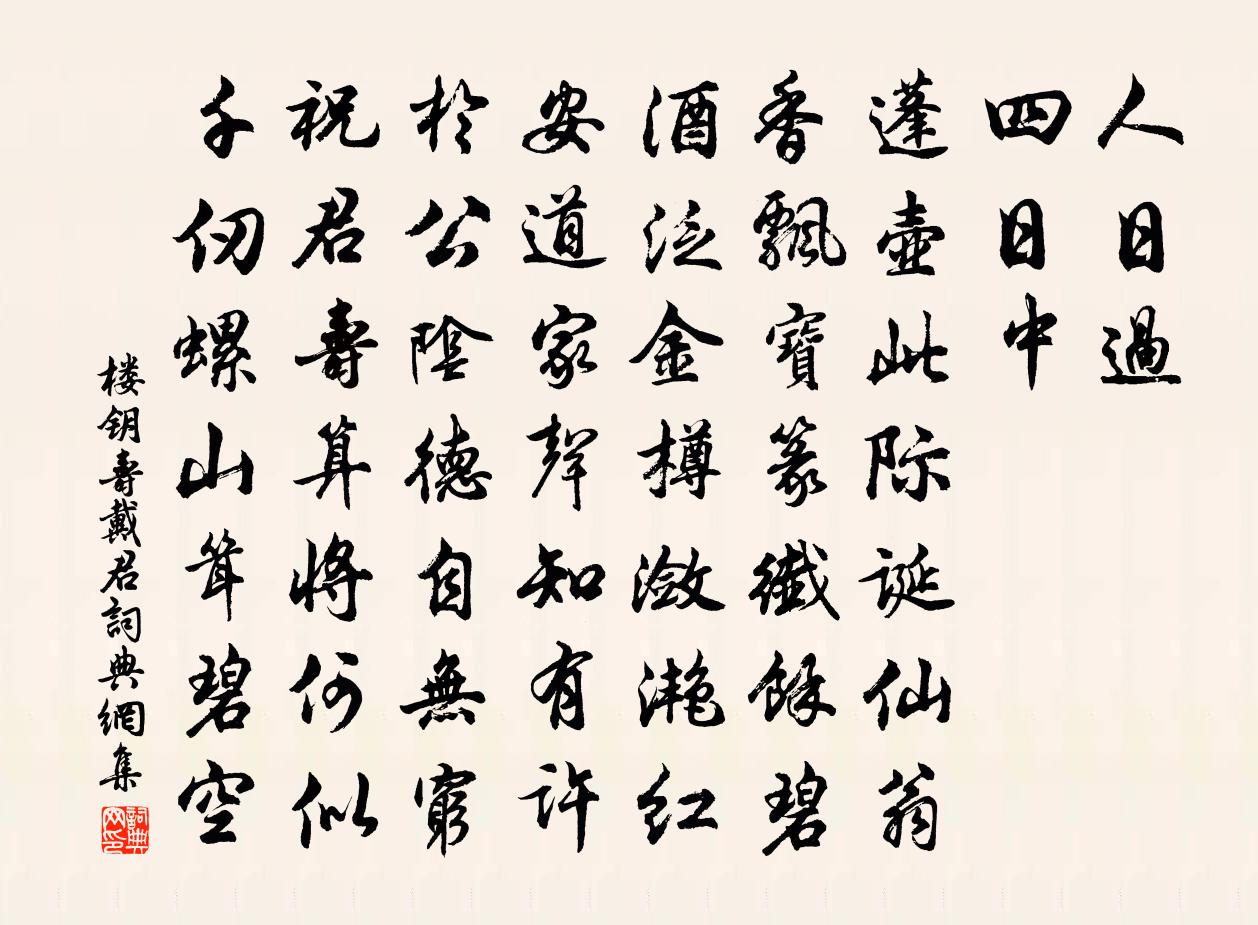 人日過
四日中
蓬壺此际誕仙翁
香飄寶篆纖餘碧
酒泛金樽瀲灧红
安道家聲知有許
於公陰德自無窮
祝君壽算將何似
千仞螺山聳碧空
楼钥壽戴君詞典網集
詞典网印